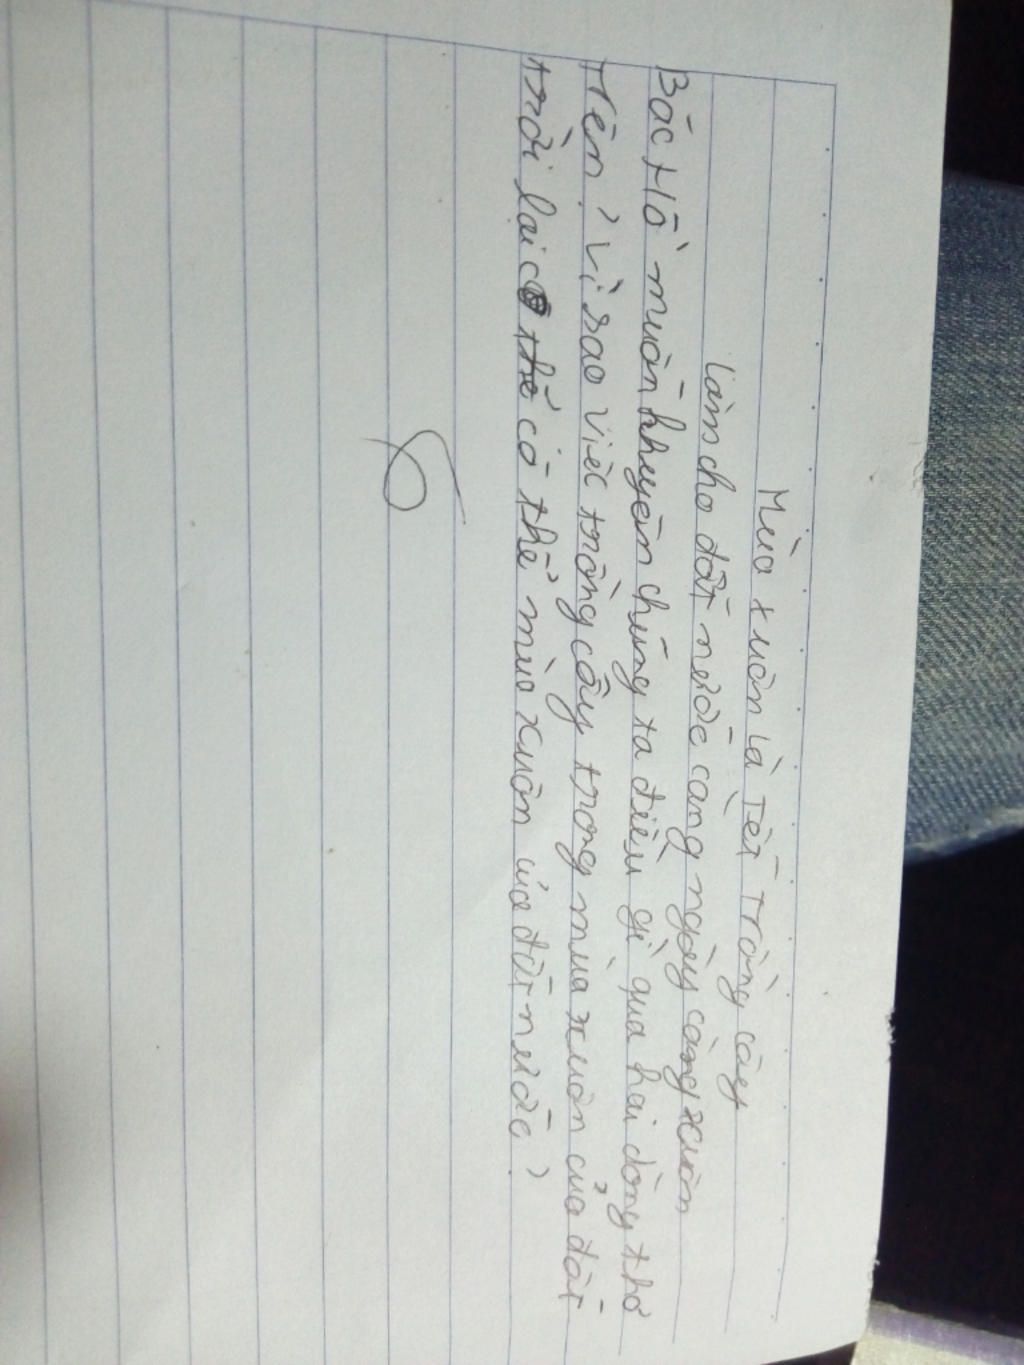 Mùa xuân là Tết trồng cây
làm cho đất nước càng ngày càng xuân
Bác Hồ muốn khuyên chúng ta điều gì qua hai dòng thơ
trên? Vì sao việc trồng cây trong mùa xuân của đất
trời lại có thể có thể mùa xuân của đất nước?